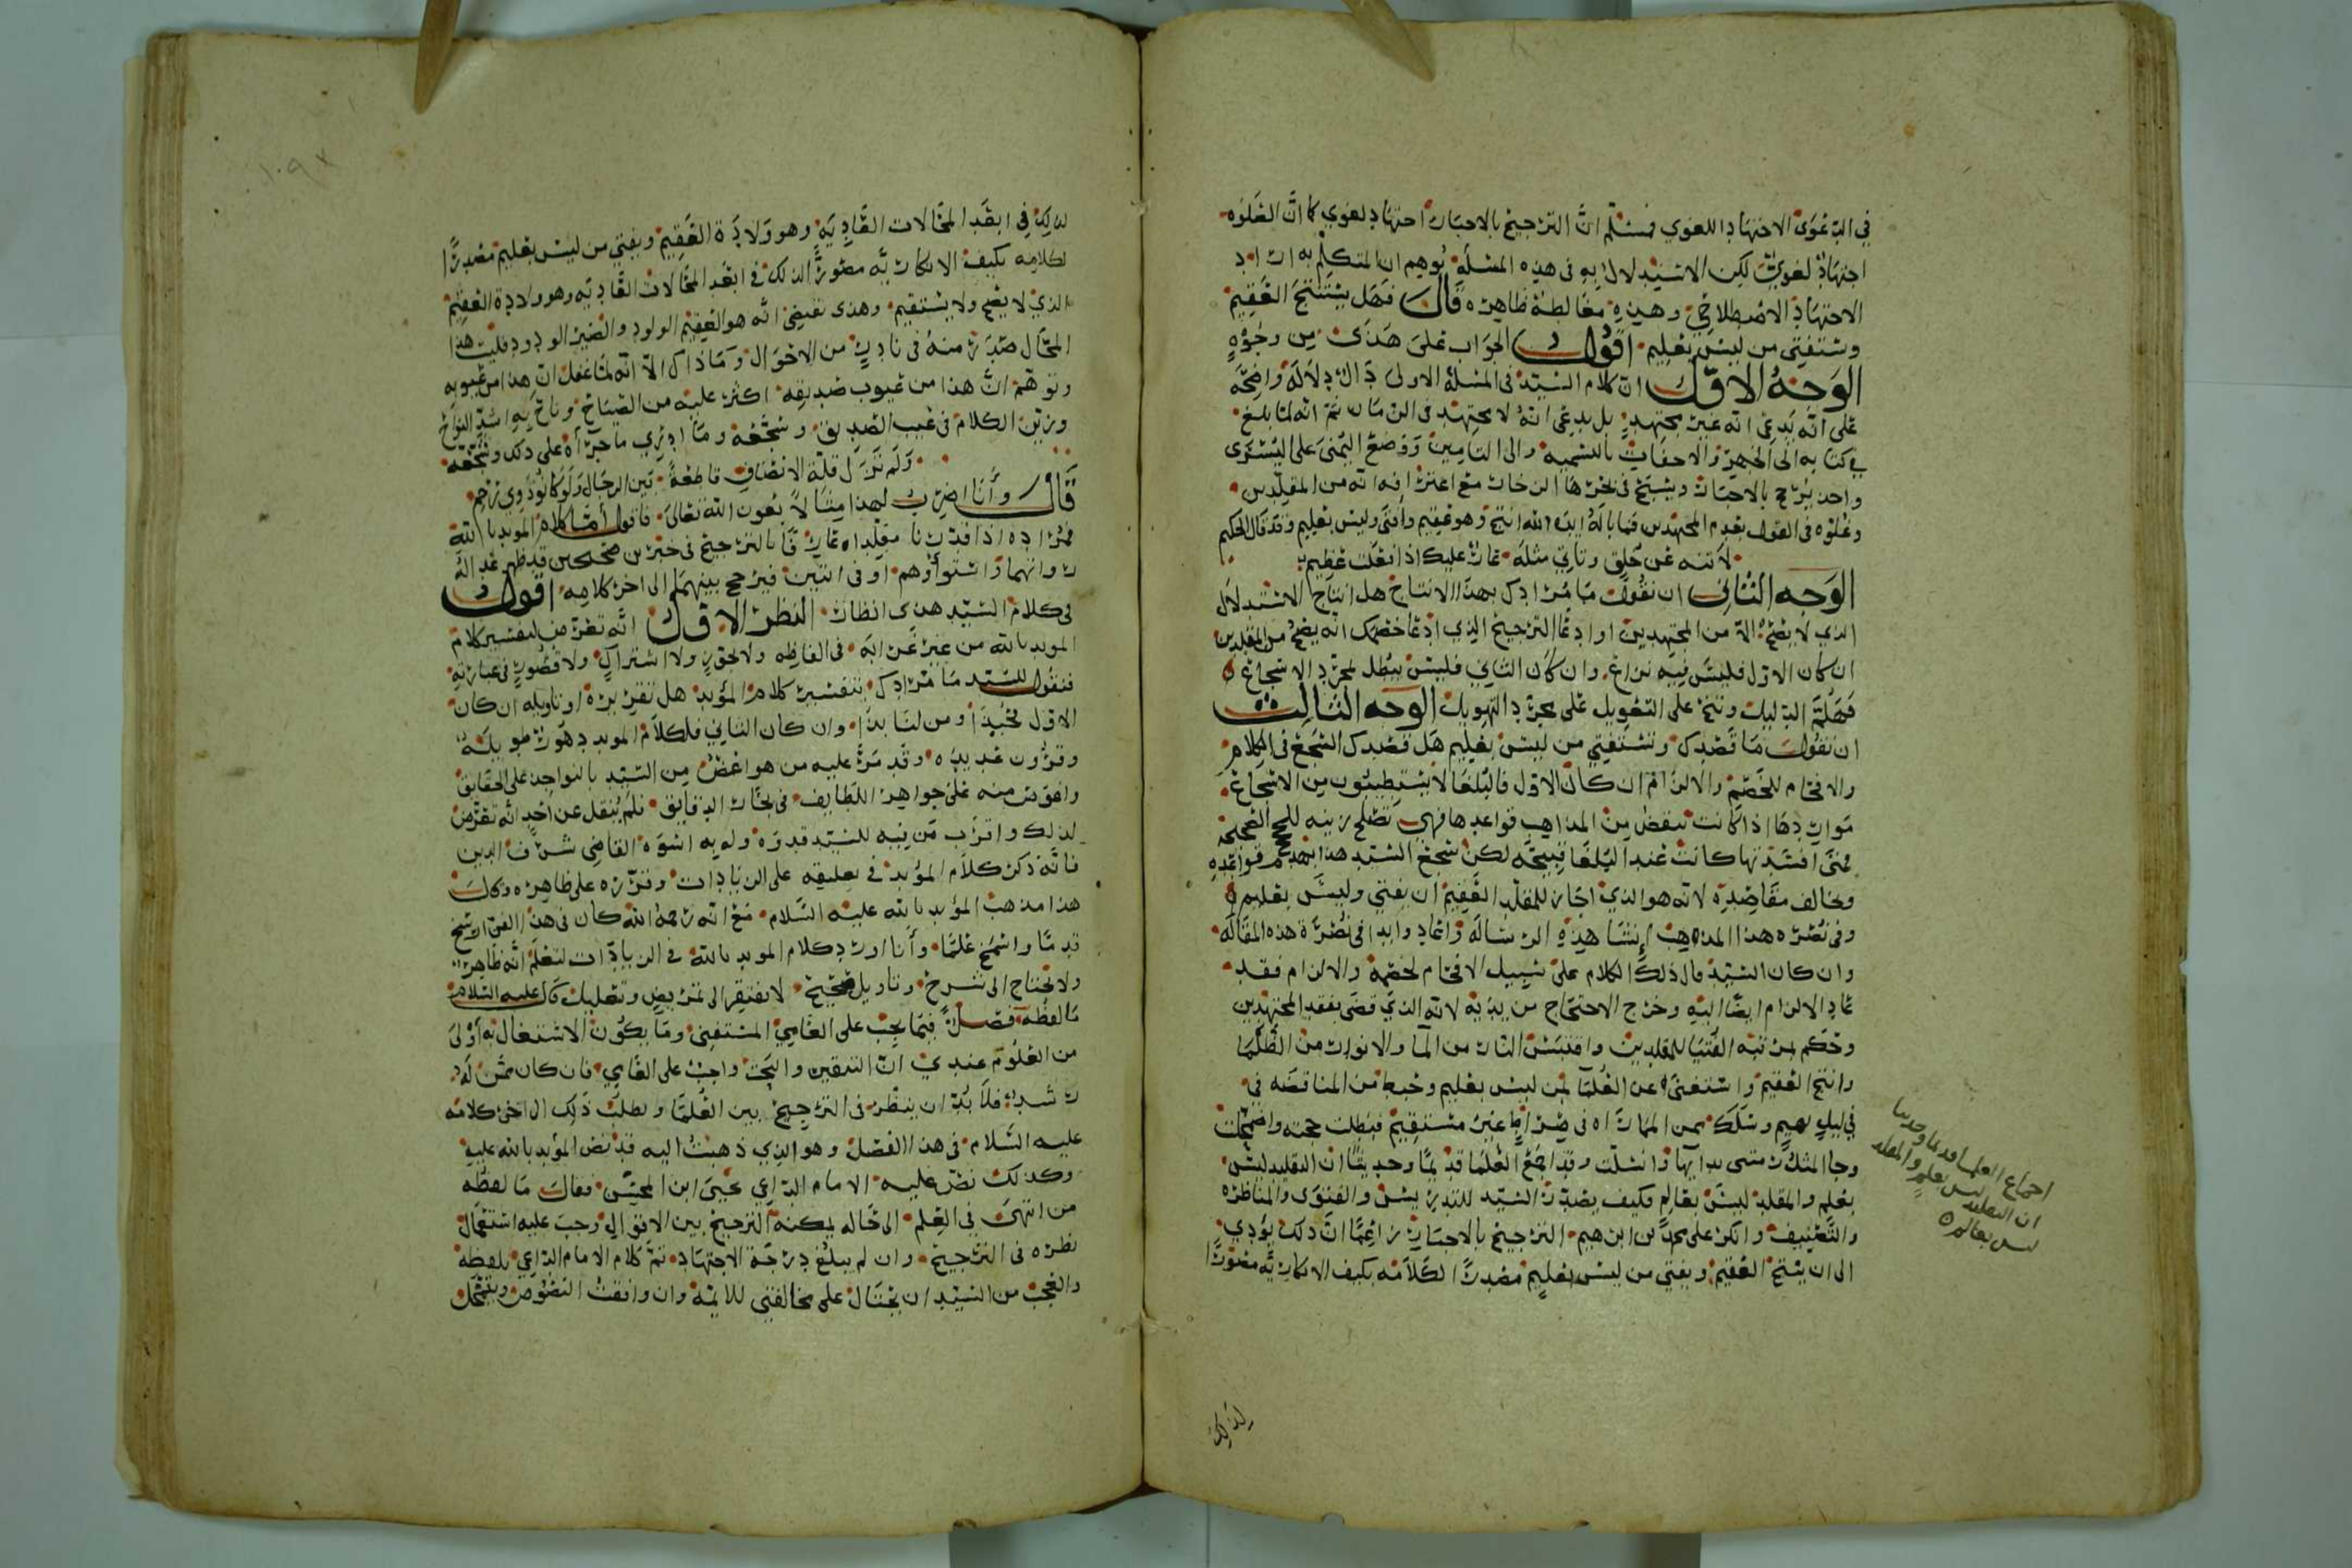 في الدعوى الاجتهاد اللغوي فمسلّم انّ الترجيح بالاخبار اجتهاد لغوي كما انّ الغلوه
اجتهاد لغوي لكن الاستدلال به فى هذه المسئلة يوهم ان المتكلم به اراد
الاجتهاد الاصطلاحي وهذه مغالطة ظاهره قال فهل يستنتج العقيم
ويستفتى من ليس بعليم اقول الجواب على هذى من وجوه
الوجه الاوّل ان كلام السيّد فى المسئلة الاولى دال دلالة واضحة
على انه يدعى انه غير مجتهد بل يدعى انه لا مجتهد فى الزمان ثم انه لما بلغ
في كتابه الى الجهر والاخفات بالتسمية والى التامين ووضع اليمنى على اليسرى
واحد يرجح بالاخبار ويسبح فى بحرها الزخار مع اعترافه انه من المقلدين
وغلوه فى القول بعدم المجتهدين فما باله ايده الله انتج وهو عقيم وافتى وليس بعليم وقد قال الحكيم
لا تنه عن خلق وتاتي مثله عار عليك اذا فعلت عظيم
الوجه الثاني ان نقول ما مرادك بهذا الانتاج هل انتاج الاستدلال
الذي لا يصح الا من المجتهدين او ادعا الترجيح الذي ادعا خصمك انه يصح من المقلدين
ان كان الاول فليس فيه نزاع وان كان الثاني فليس يبطل لمجرد الاسجاع
فهلمّ الدليل ونح على التعويل على مجرد التهويل الوجه الثالث
ان نقول ما قصدك وتستفتي من ليس بعليم هل قصدك السجع فى الكلام
والافحام للخصم والالزام ان كان الاول فالبلغا لا يستطيبون من الاسجاع
مواردها اذا كانت تنقض من المذاهب قواعدها فهي تصلح زينه للحجج الصحيحة
فمتى افسدتها كانت عند البلغا قبيحة لكن سجع السيد هذا يهدم قواعده
وخالف مقاصده لانه هو الذي اجاز للمقلد العقيم ان يفتي وليس بعليم
وفى نصره هذا المذهب انشا هذه الرسالة واعاد وابدا فى نصرة هذه المقالة
وان كان السيد قال ذلك الكلام على سبيل الافحام لخصمه والالزام فقد
عاد الالزام ايضا اليه وخرج الاحتجاج من يديه لانه الذي قضى بفقد المجتهدين
وحكم بمرتبة الفتيا للمقلدين واقتبس النار من الما والانوار من الظلما
وانتج العقيم واستغنى عن العلما بمن ليس بعليم وخبط من المناقضه في
في ليل بهيم وسلك من المماراه فى صراط غير مستقيم فبطلت حجته واضمحلت
بعلم والمقلد ليس بعالم فكيف يصدر السيد للتدريس والفتوى والمناظره
والتصنيف وانكر على محمد بن ابرهيم الترجيح بالاخبار زاعما ان ذلك يؤدي
الى ان ينتج العقيم ويفتي من ليس بعليم مصدرا لكلامه بكيف الانكاريه مصورا
لذلك
اجماع العلما قديما وحديثا
ان التقليد ليس بعلم والمقلد
ليس بعالم
لذلك في ابعد المحالات العاديه وهو ولادة العقيم ويفتي من ليس بعليم مصدرا
لكلامه بكيف الانكاريه مصورا لذلك في ابعد المحالات العاديه وهو ولادة العقيم
الذي لا يصح ولا يستقيم وهذى تقتضي انه هو العقيم الولود
المحال صدرت منه فى نادر من الاحوال وما ذاك الا انه لما غفل ان هذا من عيوبه
وتوهّم انّ هذا من عيوب صديقه اكثر عليه من الصياح وناح به اشد النواح
وزيّن الكلام فى عيب الصديق وسجعه وما ادري ما جرأه على ذلك وشجعه
ولم تزل قلّة الانصاف قاطعة بين الرجال ولو كانوا ذوي رحم
قال وأنا اضرب لهذا مثالا بعون الله تعالى فاقول أمّا كلام المويد بالله
فمراده اذا قدرنا مقلدا عارفا بالترجيح فى خبرين صحيحين قد ظهر عدالة
رواتهما واستواؤهم او فى اثنين فيرجح بينهما الى اخر كلامه اقول
فى كلام السيّد هذى انظار النظر الاوّل انه تعرّض لتفسير كلام
المويد بالله من غير غرابه فى الفاظه ولا لحق ولا اشتراك ولا قصور فى عبارته
فنقول للسيد ما مرادك بتفسير كلام المؤيد هل تقريره او تاويله ان كان
وقرون عديده وقد مرّ عليه من هو اعض من السيّد بالنواجد على الحقايق
واغوص منه على جواهر اللطايف فى بحار الدقايق فلم ينقل عن احد انه تعرّض
لذلك واقرب من ينبه للسيد قدره وله به اسوه القاضى شرف الدين
فانه ذكر كلام المؤيد في تعليقه على الزيادات وقرّره على ظاهره وقال
هذا مذهب المؤيد بالله عليه السّلام مع انه رحمه الله كان فى هذا الفن ارسخ
قدما واشمخ علما وأنا اورد كلام المويد بالله في الزيادات لتعلم انّه ظاهر
ولا يحتاج الى شرح وتاويل صحيح لا يفتقر الى تمريض وتعليل قال عليه السّلام
ما لفظه فصل فيما يجب على العامي المستفتى وما يكون الاشتغال به أولى
من العلوم عندي ان التنقير والبحث واجب على العامي فان كان ممن له
رشد فلا بدّ ان ينظر فى الترجيح بين العلما ويطلب ذلك الى اخر كلامه
عليه السّلام فى هذا الفصل وهو الذي ذهبت اليه قد نص المؤيد بالله عليه
وكذلك نصّ عليه الامام الداعي يحيى ابن المحسّن فقال ما لفظه
من انتهى في العلم الى حاله يمكنه الترجيح بين الاقوال وجب عليه استعمال
نظره فى الترجيح وان لم يبلغ درجة الاجتهاد تمّ كلام الامام الداعي بلفظه
والعجب من السيّد ان يحتال على مخالفتي للائمة وان وافقت النصوص ويتمحّل